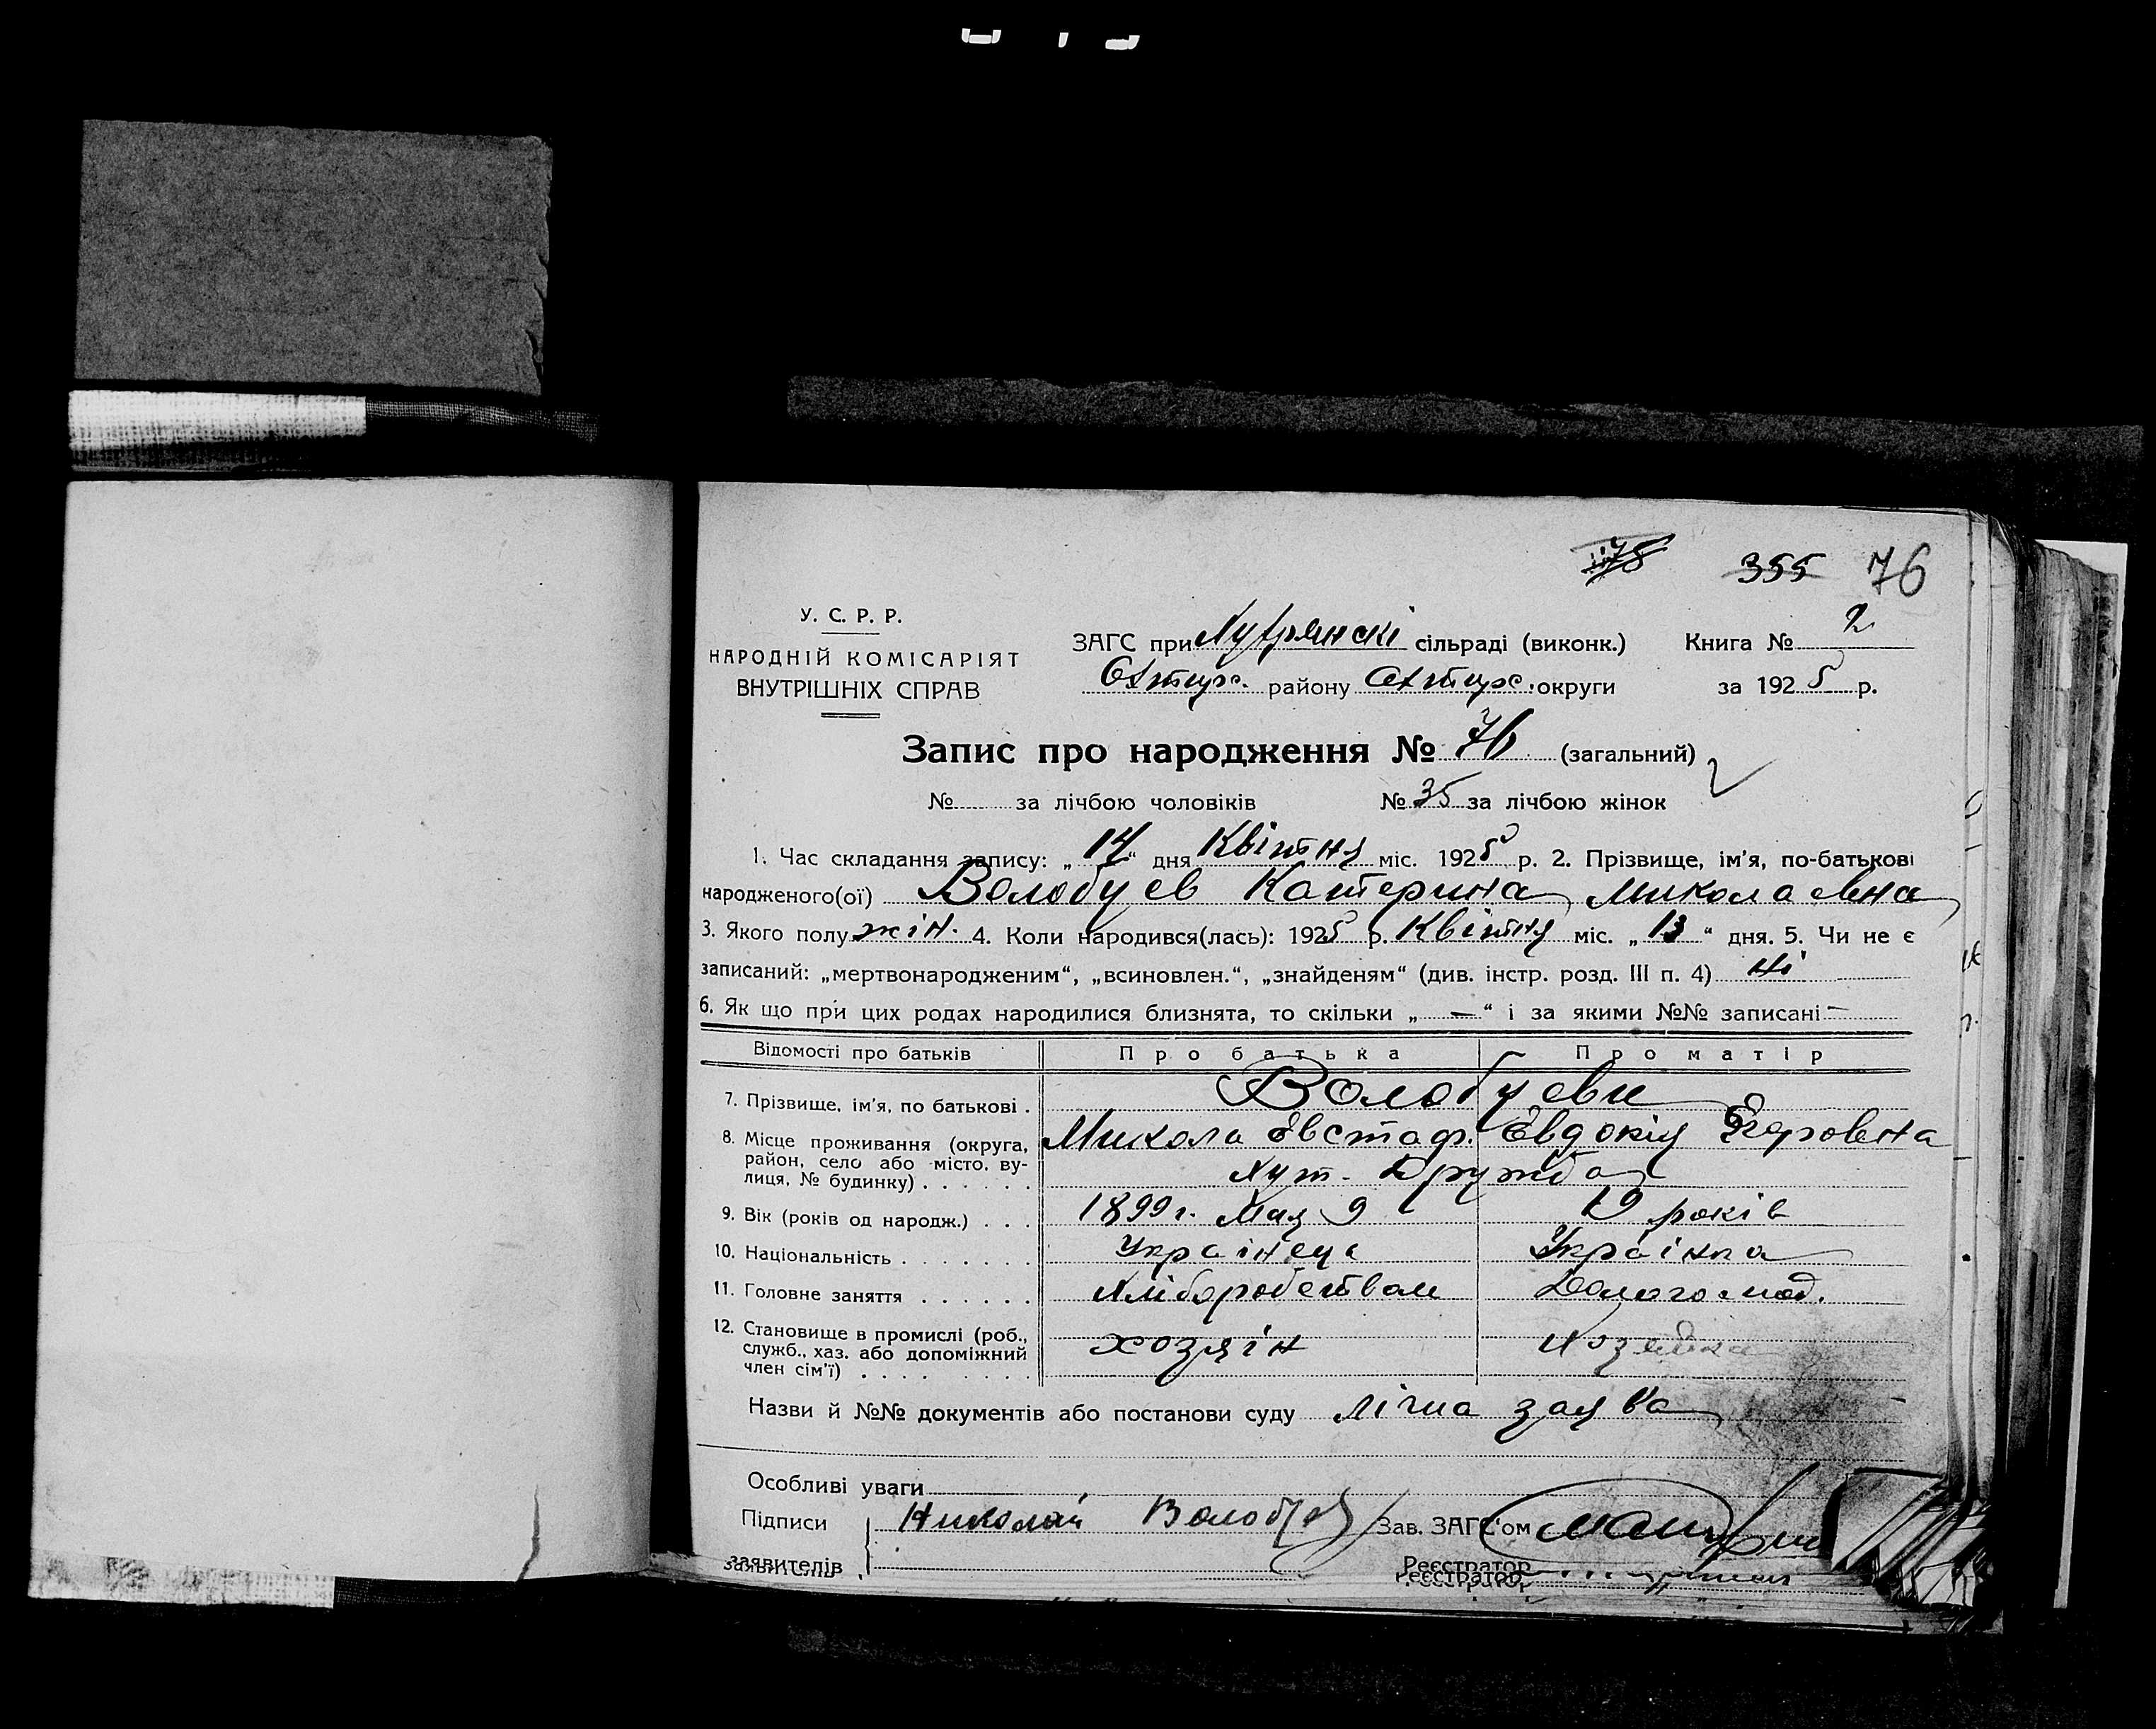 355 76
У. С. Р. Р.
НАРОДНІЙ КОМІСАРІЯТ
ВНУТРІШНІХ СПРАВ
ЗАГС при Хутрянскі сільраді (виконк.) Книга № 2
Охтирс. району Охтирс. округи за 1925 р.
Запис про народження № 76 (загальний)
№ за лічбою чоловіків № 35 за лічбою жінок
1. Час складання запису: „14“ дня Квітня міс. 1925 р. 2. Прізвище, ім'я, по-батькові
народженого(ої) Волобуєв Катерина Миколаєвна
3. Якого полу жін. 4. Коли народився(лась): 1925 р. Квітня міс. „13“ дня. 5. Чи не є
записаний: „мертвонародженим“, „всиновлен.“, „знайденям“ (див. інстр. розд. III п. 4) Ні
6. Як що при цих родах народилися близнята, то скільки „—“ і за якими №№ записані —
Відомості про батьків Про батька Про матір
7. Прізвище, ім'я, по батькові . Волобуєви
Микола Євстаф. Євдокія Єгоровна
8. Місце проживання (округа,
район, село або місто, ву-
лиця, № будинку) . . . . . . Хут. Дружба
9. Вік (років од народж.) . . . 1899 г. Мая 9 19 років
10. Національність . . . . . . . Українець Українка
11. Головне заняття . . . . . . Хліборобством Домогоспод.
12. Становище в промислі (роб.,
служб., хаз. або допоміжний
член сім'ї) . . . . . . . . . хозяін Хозяйка
Назви й №№ документів або постанови суду лічна заява
Особливі уваги
Підписи Николай Волобуев Зав. ЗАГС'ом
заявителів Реєстратор